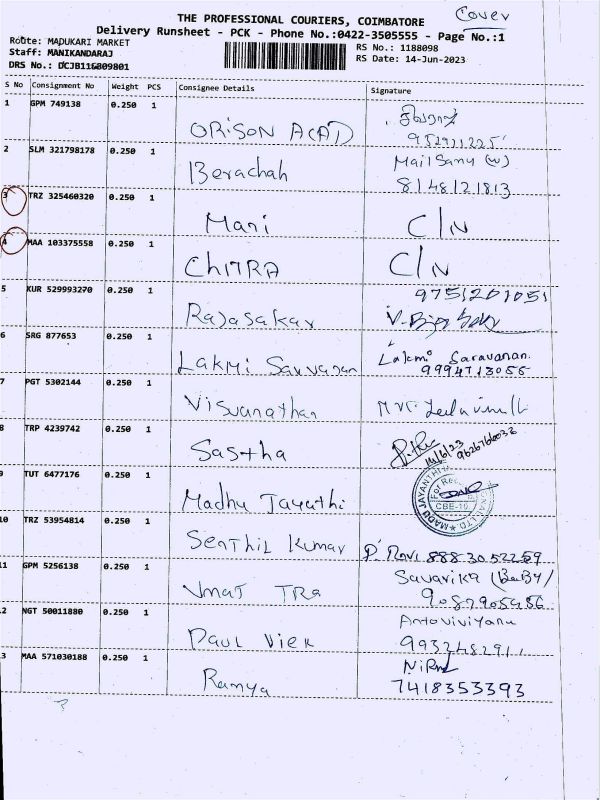 Cover
THE PROFESSIONAL COURIERS, COIMBATORE
Delivery Runsheet - PCK - Phone No.:0422-3505555 - Page No.:1
Route: MADUKARI MARKET
RS No.: 1188098
Staff: MANIKANDARAJ
RS Date: 14-Jun-2023
DRS No.: DCJB116809801
S No Consignment No Weight PCS Consignee Details Signature
1 GPM 749138 0.250 1 ORISON A(AD)
2 SLM 321798178 0.250 1 Berachah Mail Samy (w)
8148121813
3 TRZ 325460320 0.250 1 Mani C/N
4 MAA 103375558 0.250 1 CHITRA C/N
5 KUR 529993270 0.250 1 Rajasakar 9751201051
6 SRG 877653 0.250 1 Lakmi Sarvanan Lakmi Saravanan.
9994713055
7 PGT 5302144 0.250 1 Visvanathan
8 TRP 4239742 0.250 1 Sastha 14/6/23
9626766032
9 TUT 6477176 0.250 1 Madhu Jayathi CBE-10.
10 TRZ 53954814 0.250 1 Senthil Kumar P. Ravi 88830 52259
11 GPM 5256138 0.250 1 Umat TRA Savarika (Baby)
9087905486
12 NGT 50011880 0.250 1 Paul Vier Antoviviyanu
13 MAA 571030188 0.250 1 Ramya Nirml
7418353393